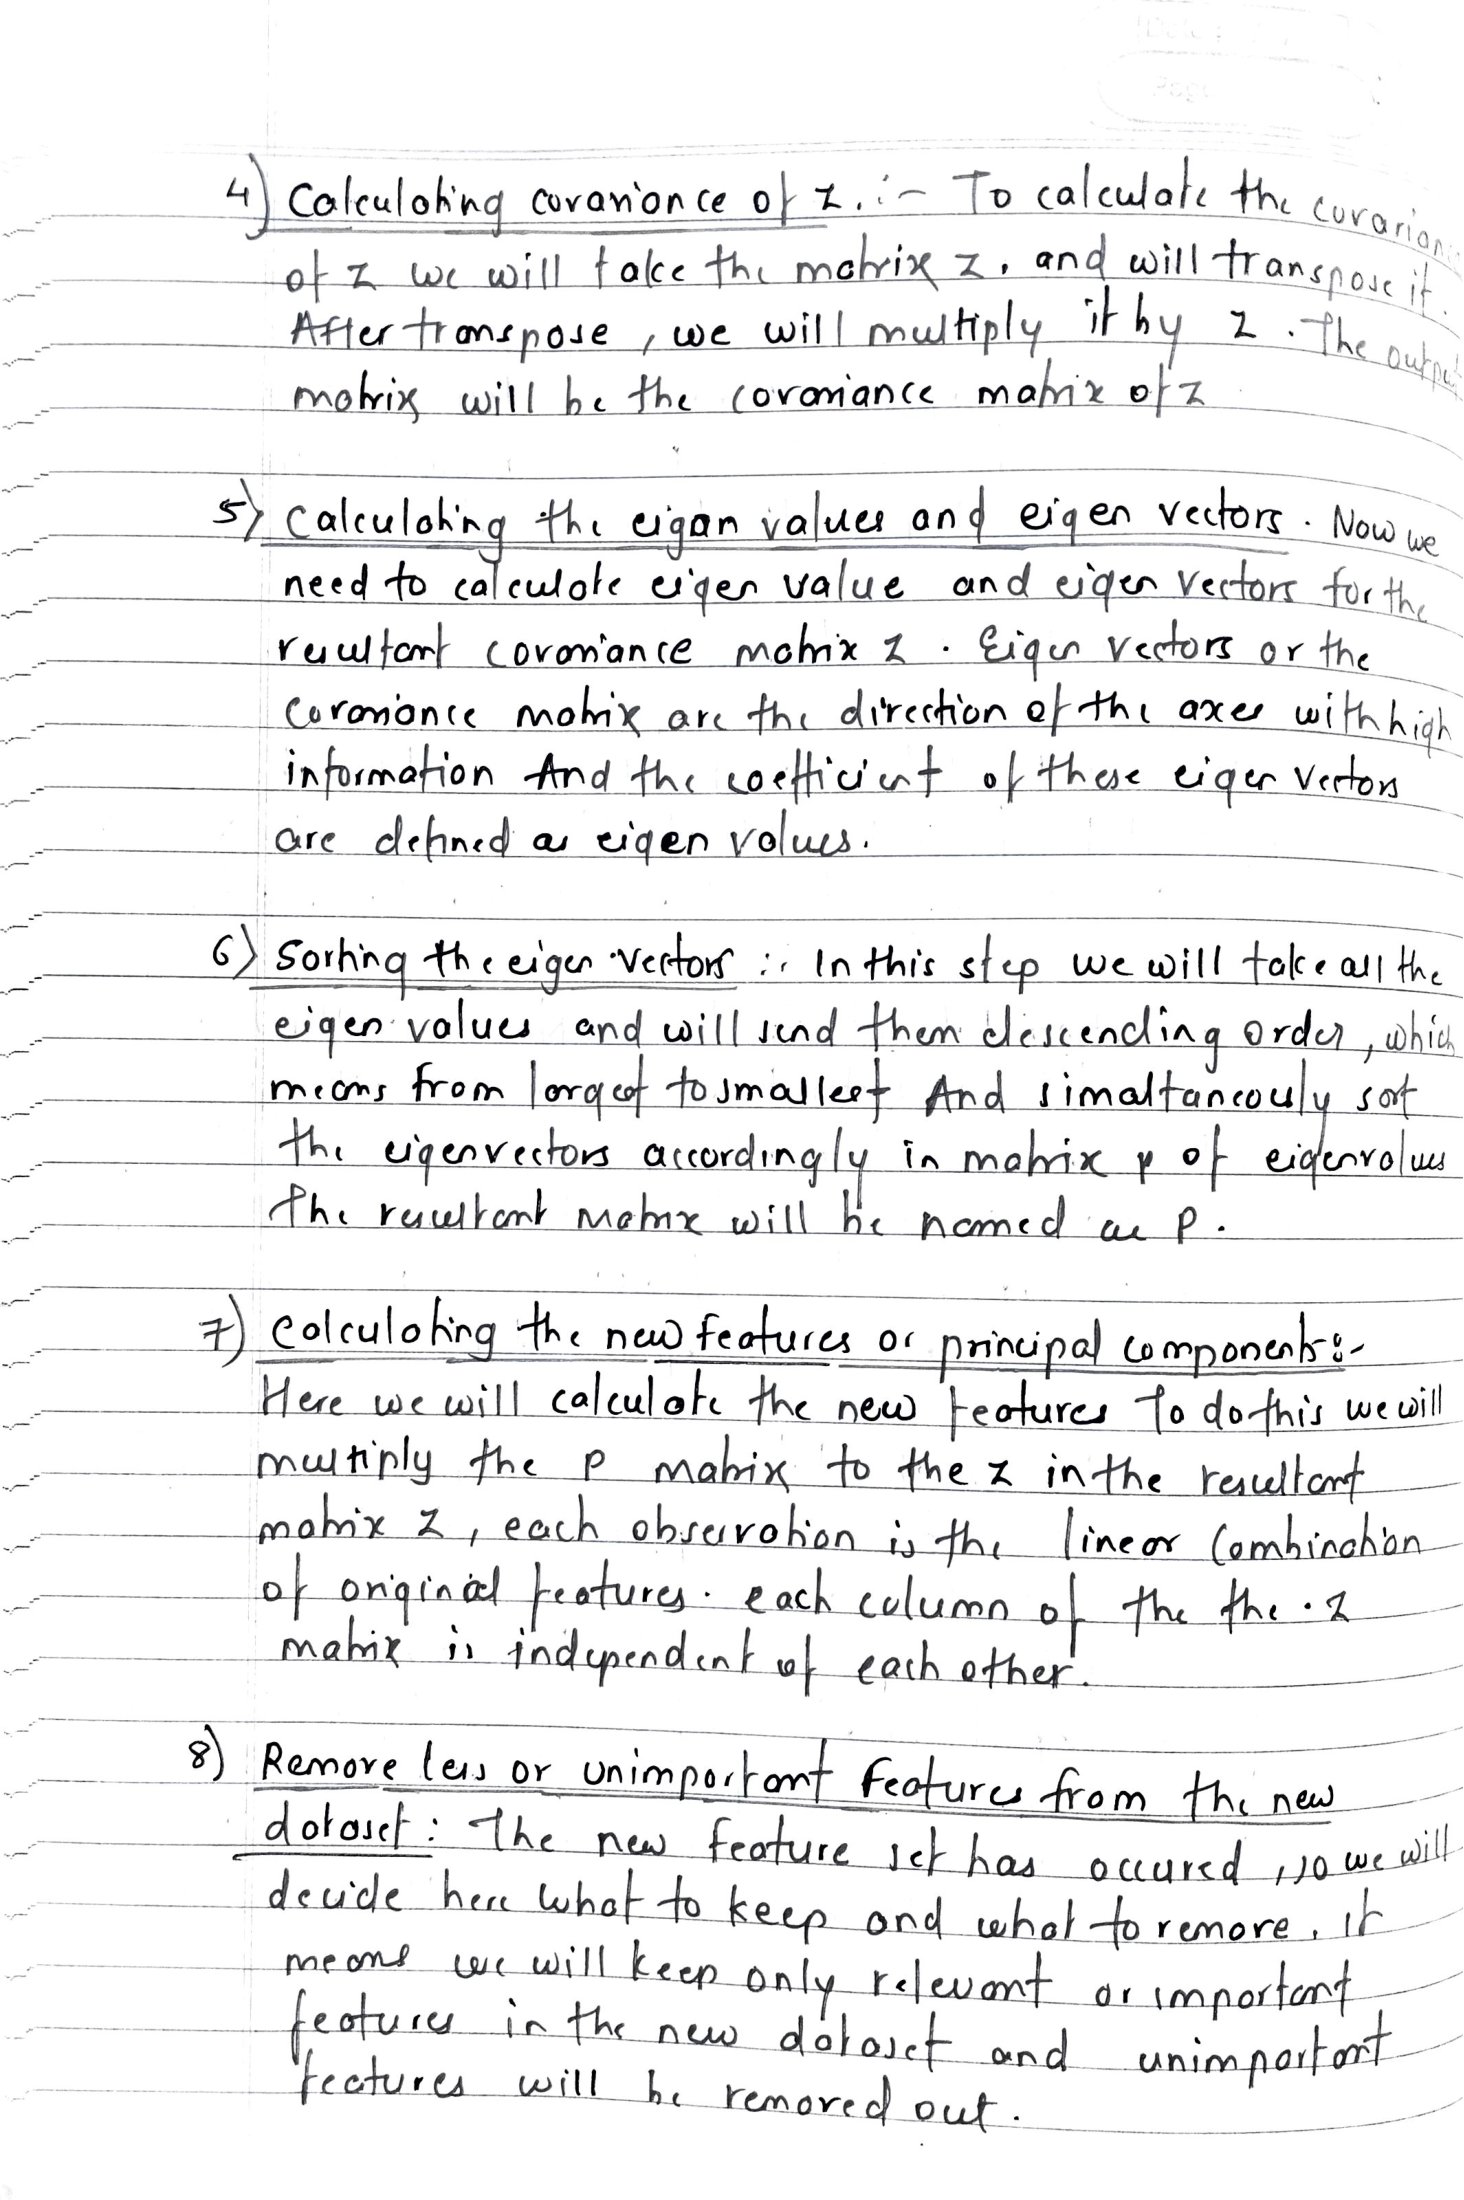 4) Calculating covariance of Z. :- To calculate the covarianc
of Z we will take the matrix Z, and will transpose it.
After transpose, we will multiply it by Z. The output
matrix will be the covariance matrix of Z
5) Calculating the eigan values and eigen vectors. Now we
need to calculate eigen value and eigen vectors for the
resultant covariance matrix Z. Eigen vectors or the
covariance matrix are the direction of the axes with high
information And the coefficient of these eigen vectors
are defined as eigen values.
6) Sorting the eigen vectors :. In this step we will take all the
eigen values and will send them descending order, which
means from largest to smallest And simaltaneously sort
the eigenvectors accordingly in matrix p of eigenvalues
The resultant matrix will be named as P.
7) Calculating the new features or principal components:-
Here we will calculate the new features To do this we will
multiply the P matrix to the Z in the resultant
matrix Z, each observation is the linear Combination
of original features. each column of the the . Z
matrix is independent of each other.
8) Remove less or unimportant features from the new
dataset: The new feature set has occured, so we will
decide here what to keep and what to remove. it
means we will keep only relevant or important
features in the new dataset and unimportant
features will be removed out.